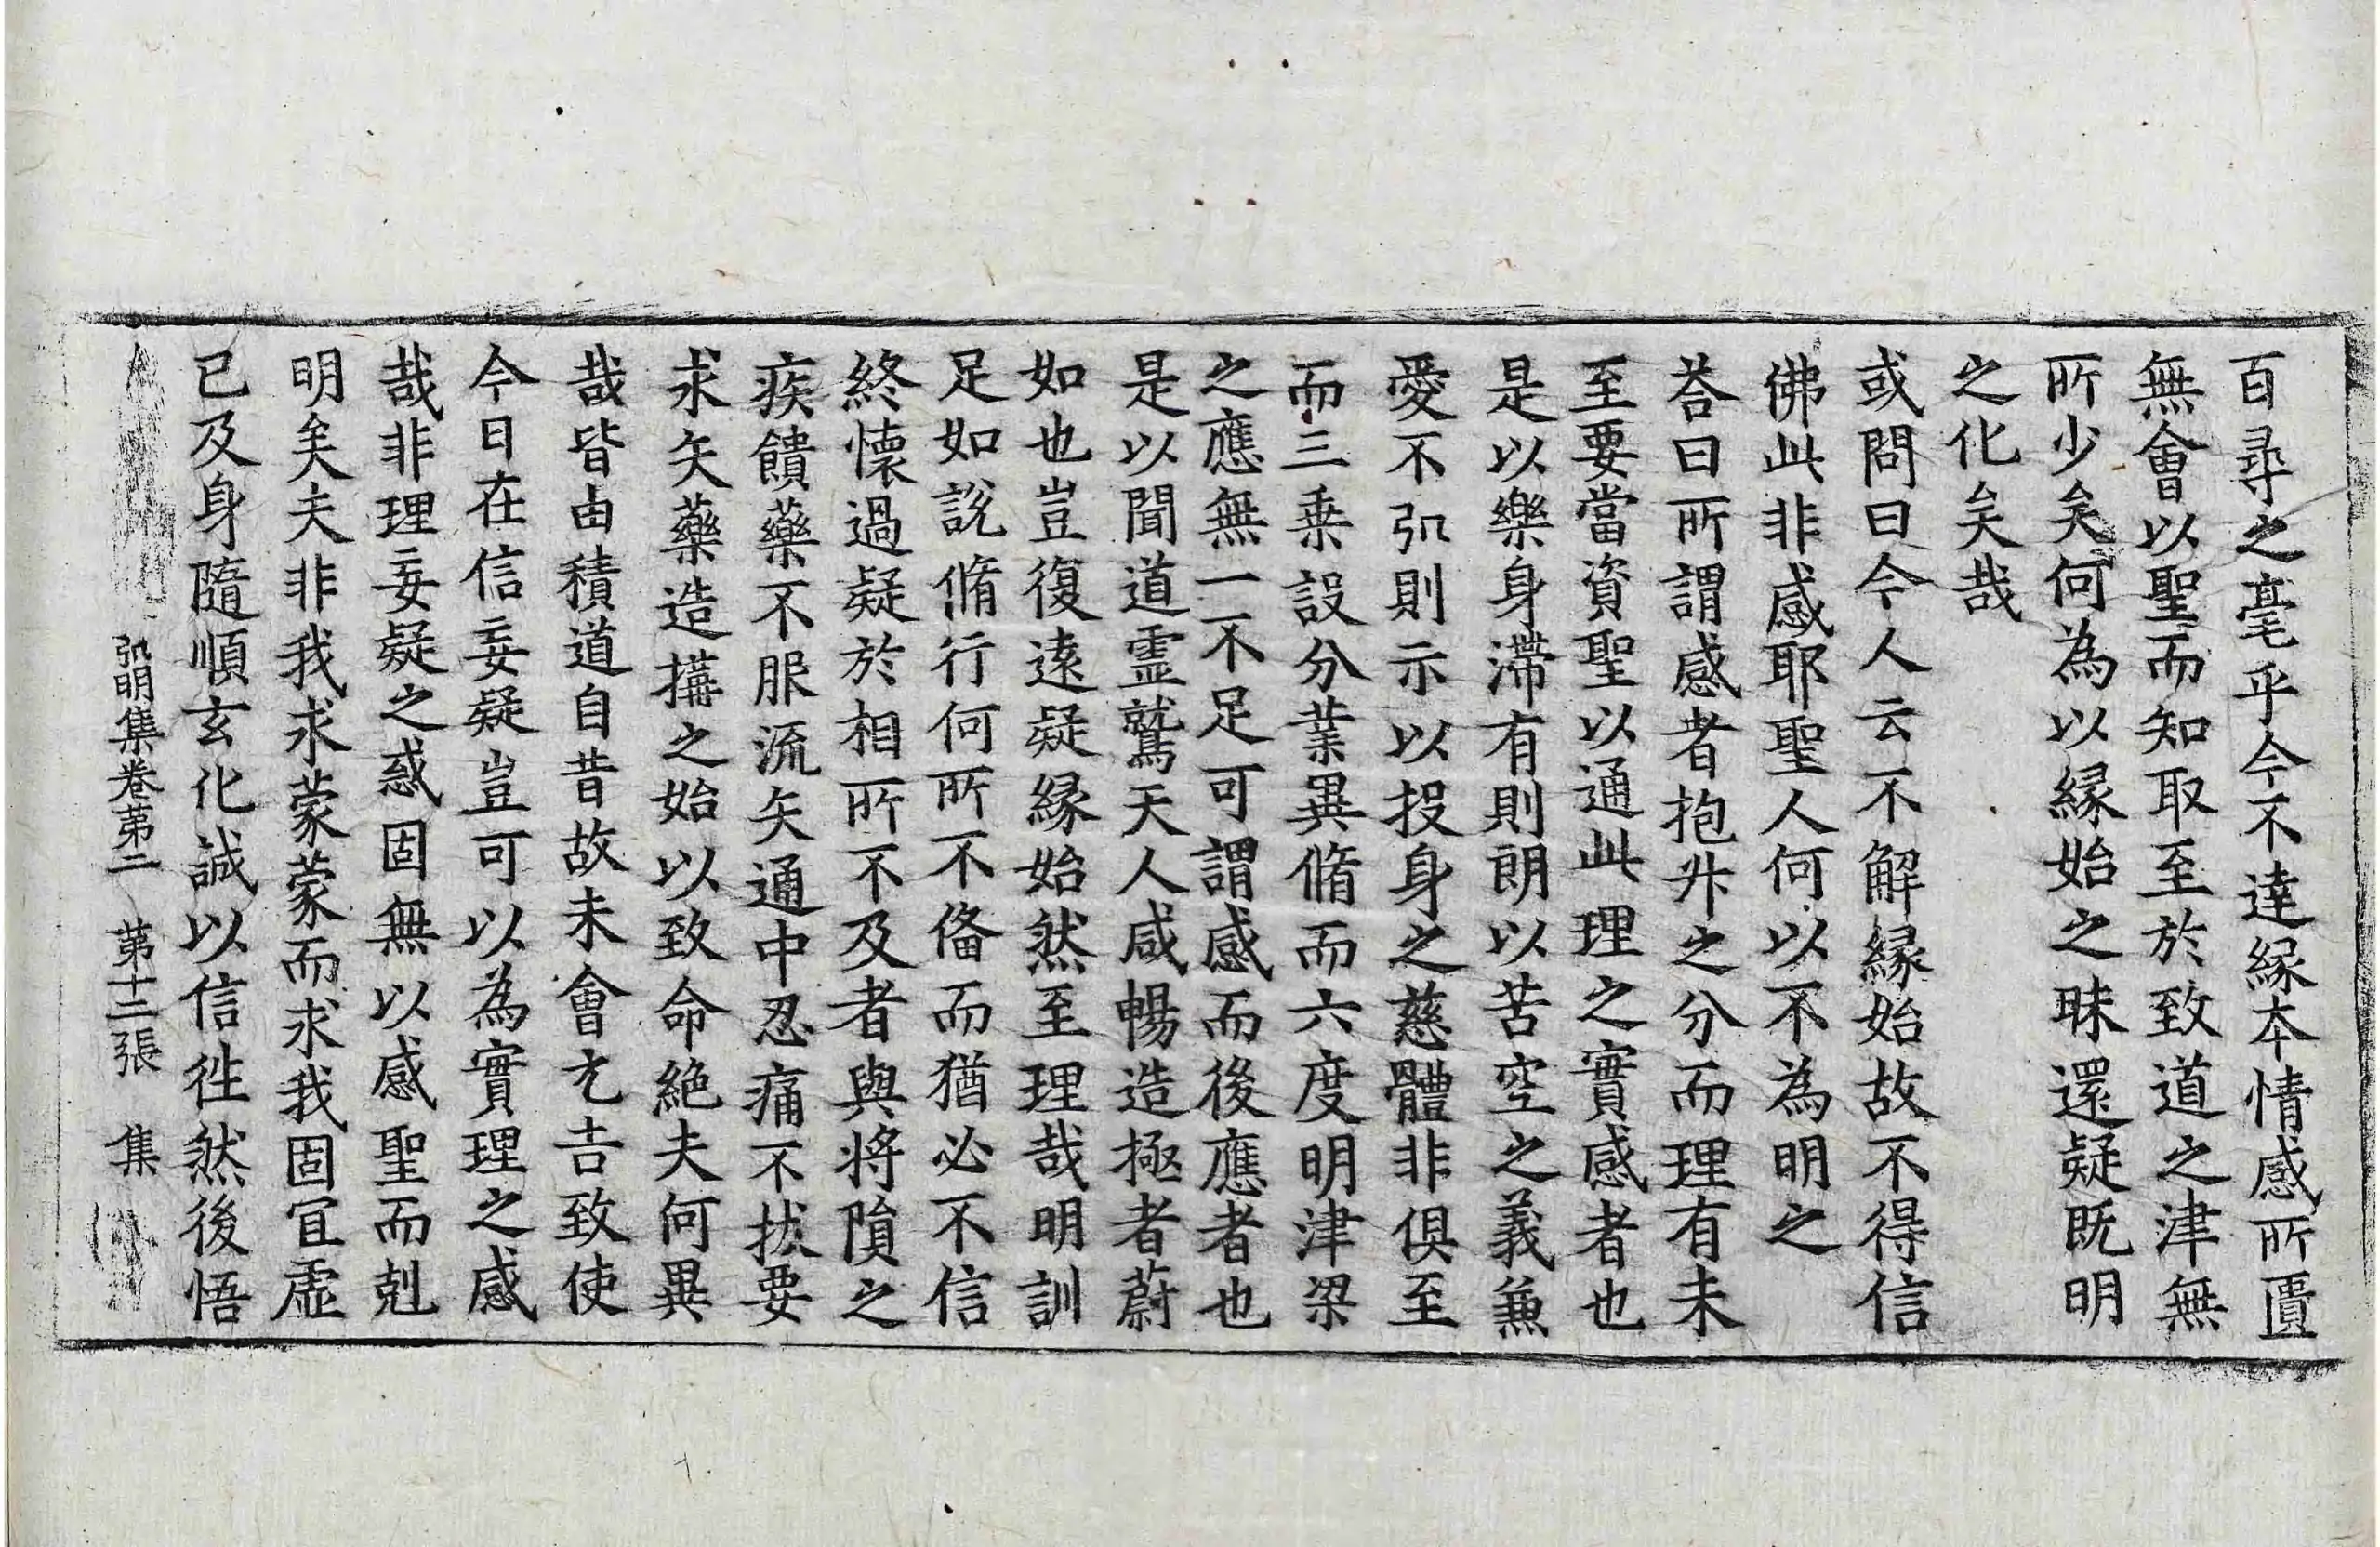 百尋之毫乎今不達緣本情感所匱
無會以聖而知取至於致道之津無
所少矣何為以緣始之昧還疑既明
之化矣哉
或問曰今人云不解緣始故不得信
佛此非感耶聖人何以不為明之
荅曰所謂感者抱升之分而理有未
至要當資聖以通此理之實感者也
是以樂身滯有則朗以苦空之義兼
愛不弘則示以投身之慈體非俱至
而三乗設分業異脩而六度明津梁
之應無一不足可謂感而後應者也
是以聞道霊鷲天人咸暢造極者蔚
如也豈復遠疑緣始然至理哉明訓
足如說脩行何所不偹而猶必不信
終懷過疑於相所不及者與將隕之
疾饋藥不服流矢通中忍痛不拔要
求矢藥造搆之始以致命絶夫何異
哉皆由積道自昔故未會尤吉致使
今日在信妄疑豈可以為實理之感
哉非理妄疑之惑固無以感聖而剋
明矣夫非我求蒙蒙而求我固冝虛
已及身隨順玄化誠以信徃然後悟
弘明集卷苐二　苐十二張　集